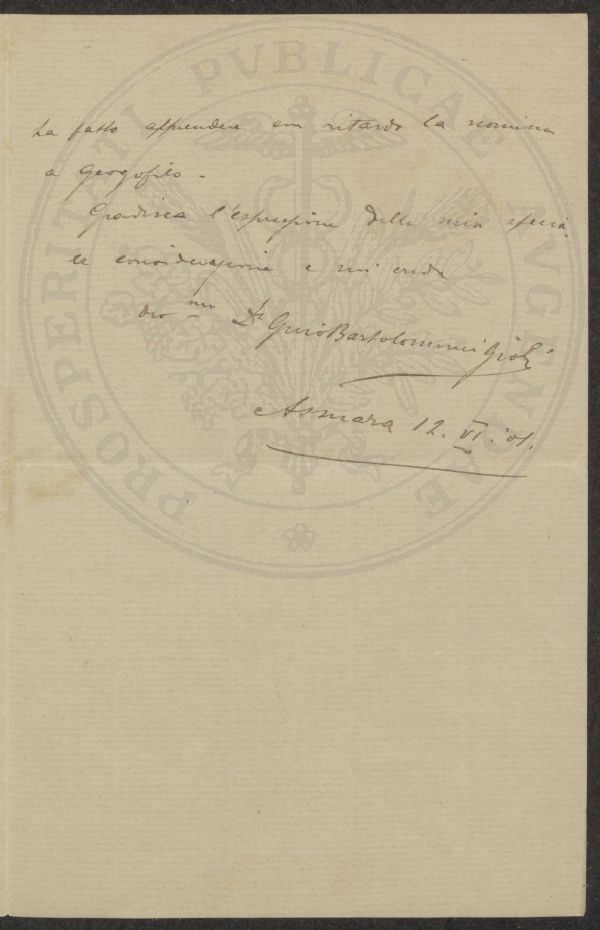 ha fatto apprendere con ritardo la nomina
a Georgofilo -
Gradisca l'espressione della mia specia-
le considerazione e mi creda
dev mo Dr Gino Bartolommei Gioli
Asmara 12. VI. 01.
PROSPERITATI PVBLICAE AVGENDAE